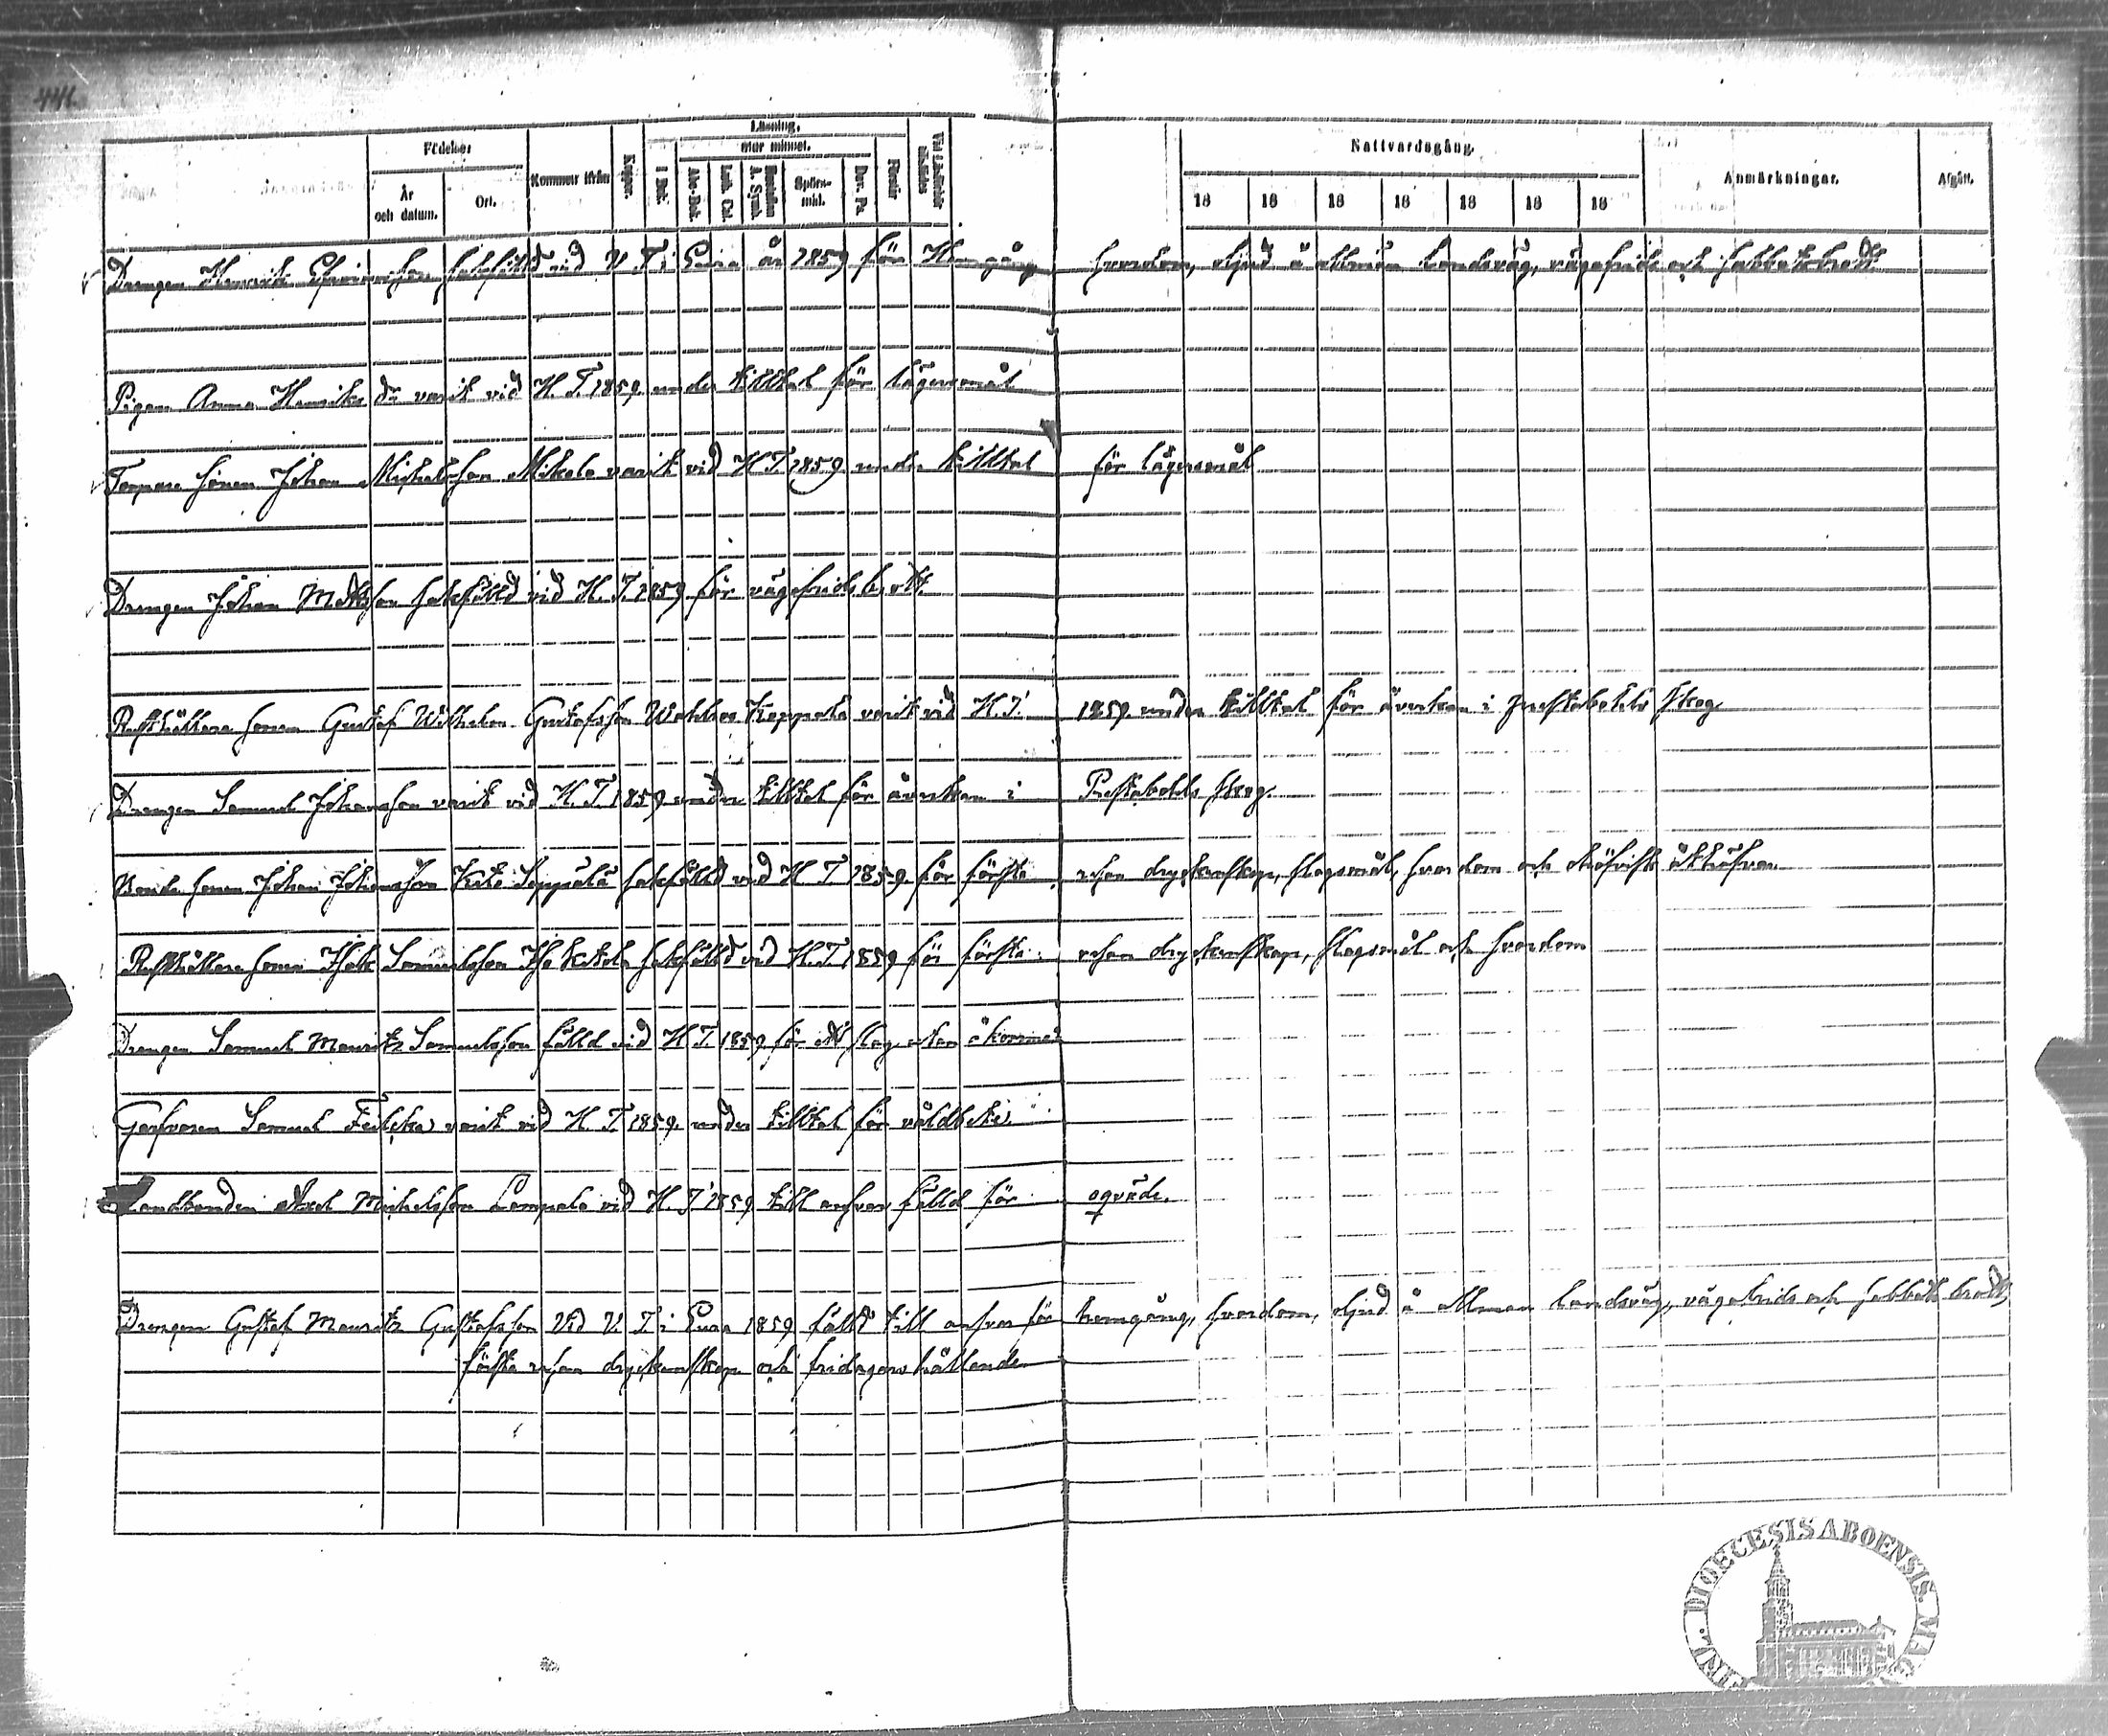 441.
Födelse
År och datum.
Ort.
Kommen ifrån
Koppor.
Läsning,
utur minnet.
I Bok.
Abc-Bok.
Luth. Cat.
Hustaflan A. Symb.
Spörs-mål.
Dav. Ps.
Förstår
Nattvardsgång.
18 18 18 18 18 18 18
Anmärkningar.
Afgått.
Drengen Henrik sakfälld vid V. T. i Eura år 1859 för Hemgång hvordom, oljud å allmän landsväg, vägafrids och sabbatsbrott
Pigan Anna Henriksdr varit vid H. T. 1859. under tilltal för lägersmål
Torpare sonen Johan Michelsson Mikola varit vid H T. 1859 under tilltal för lägersmål
Drengen Johan Mattsson sakfälld vid H. T. 1859 för vägafrids brott.
Rusthållare sonen Gustaf Wilhelm Gustafsson varit vid H. T. 1859. under tilltal för åverkan i Prestabolets skog
Drengen Samuel Johansson varit vid H. T. 1859 under tilltal för åverkan i Prestabolets skog.
Bonde sonen Johan Johansson Seppälä sakfälld vid H. T. 1859. för första resan dryckenskap, slagsmål, hvordom och åthäfvor
Rusthållare sonen Isak Samuelsson sakfälld vid H. T. 1859 för första resan dryckenskap, slagsmål och hvordom
Drengen Samuel Mauritz Samuelsson fälld vid H T. 1859 för ett slag utan åkomma
Garfvaren Samuel varit vid H. T. 1859. under tilltal för
Landbonden Axel Michelsson Lampala vid H. T 1859 till ansvar fälld för oqväde.
Drengen Gustaf Mauritz Gustafsson vid V. T. i Eura 1859 fälld till ansvar för hemgång, hvordom, oljud å allmän landsväg, vägafrids och sabbats brott,
första resan dryckenskap och
DIOECESIS ABOENSIS.